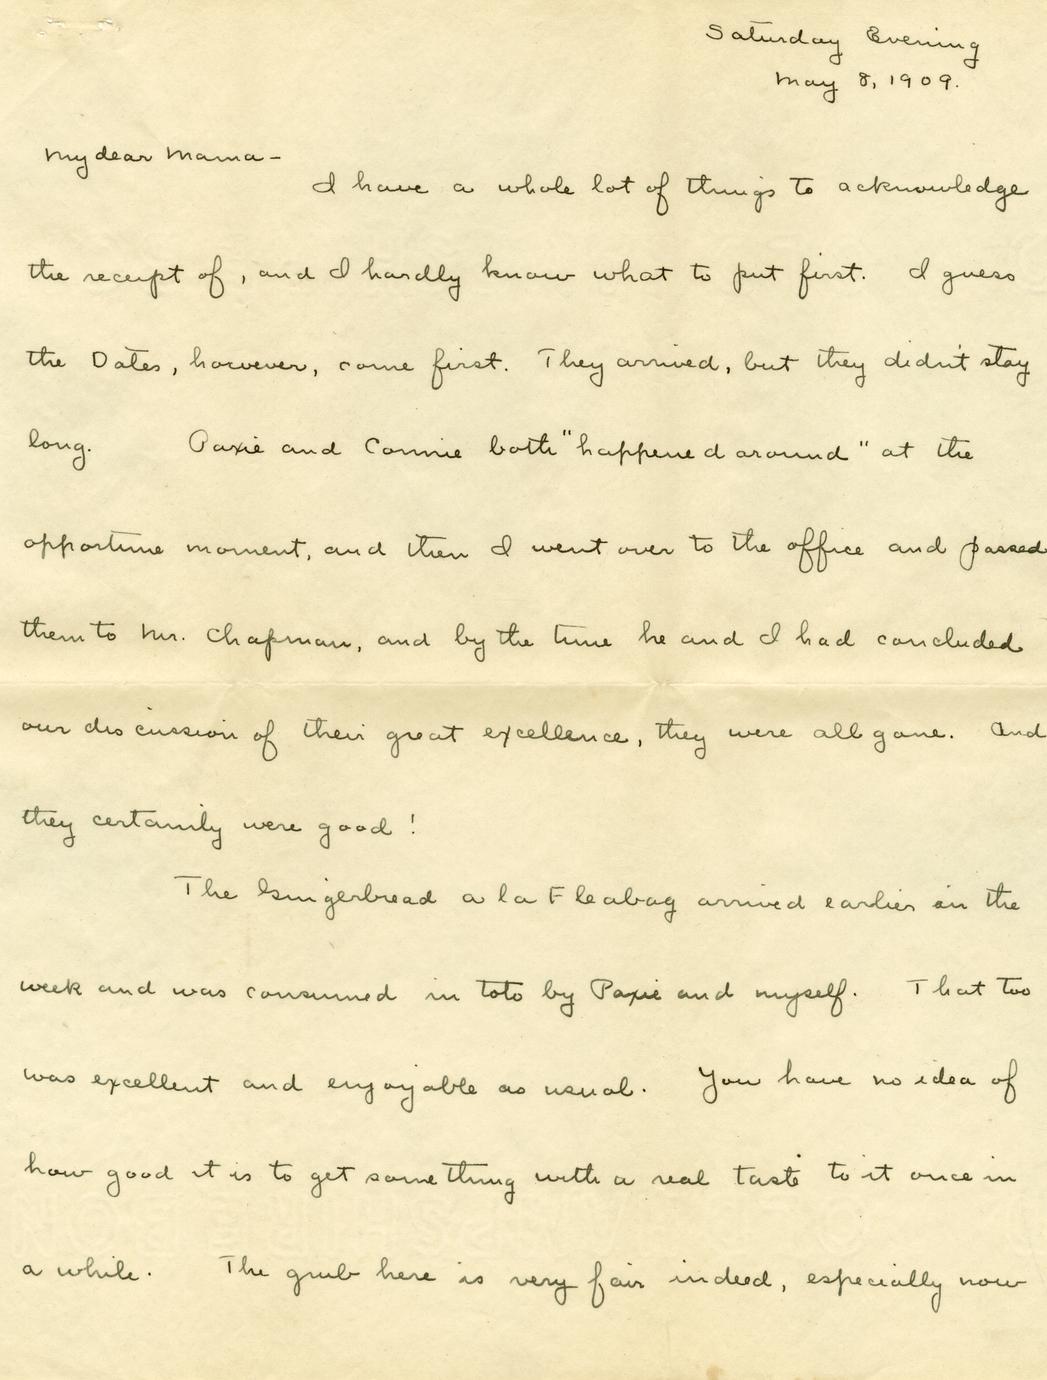 Saturday Evening
May 8, 1909.
My dear Mama-
I have a whole lot of things to acknowledge
the receipt of, and I hardly know what to put first. I guess
the Dates, however, come first. They arrived, but they didn't stay
long. Paxie and Connie both "happened around" at the
opportune moment, and then I went over to the office and passed
them to Mr. Chapman, and by the time he and I had concluded
our discussion of their great excellence, they were all gone. And
they certainly were good!
The Gingerbread a la Fleabag arrived earlier in the
week and was consumed in toto by Paxie and myself. That too
was excellent and enjoyable as usual. You have no idea of
how good it is to get something with a real taste to it once in
a while. The grub here is very fair indeed, especially now